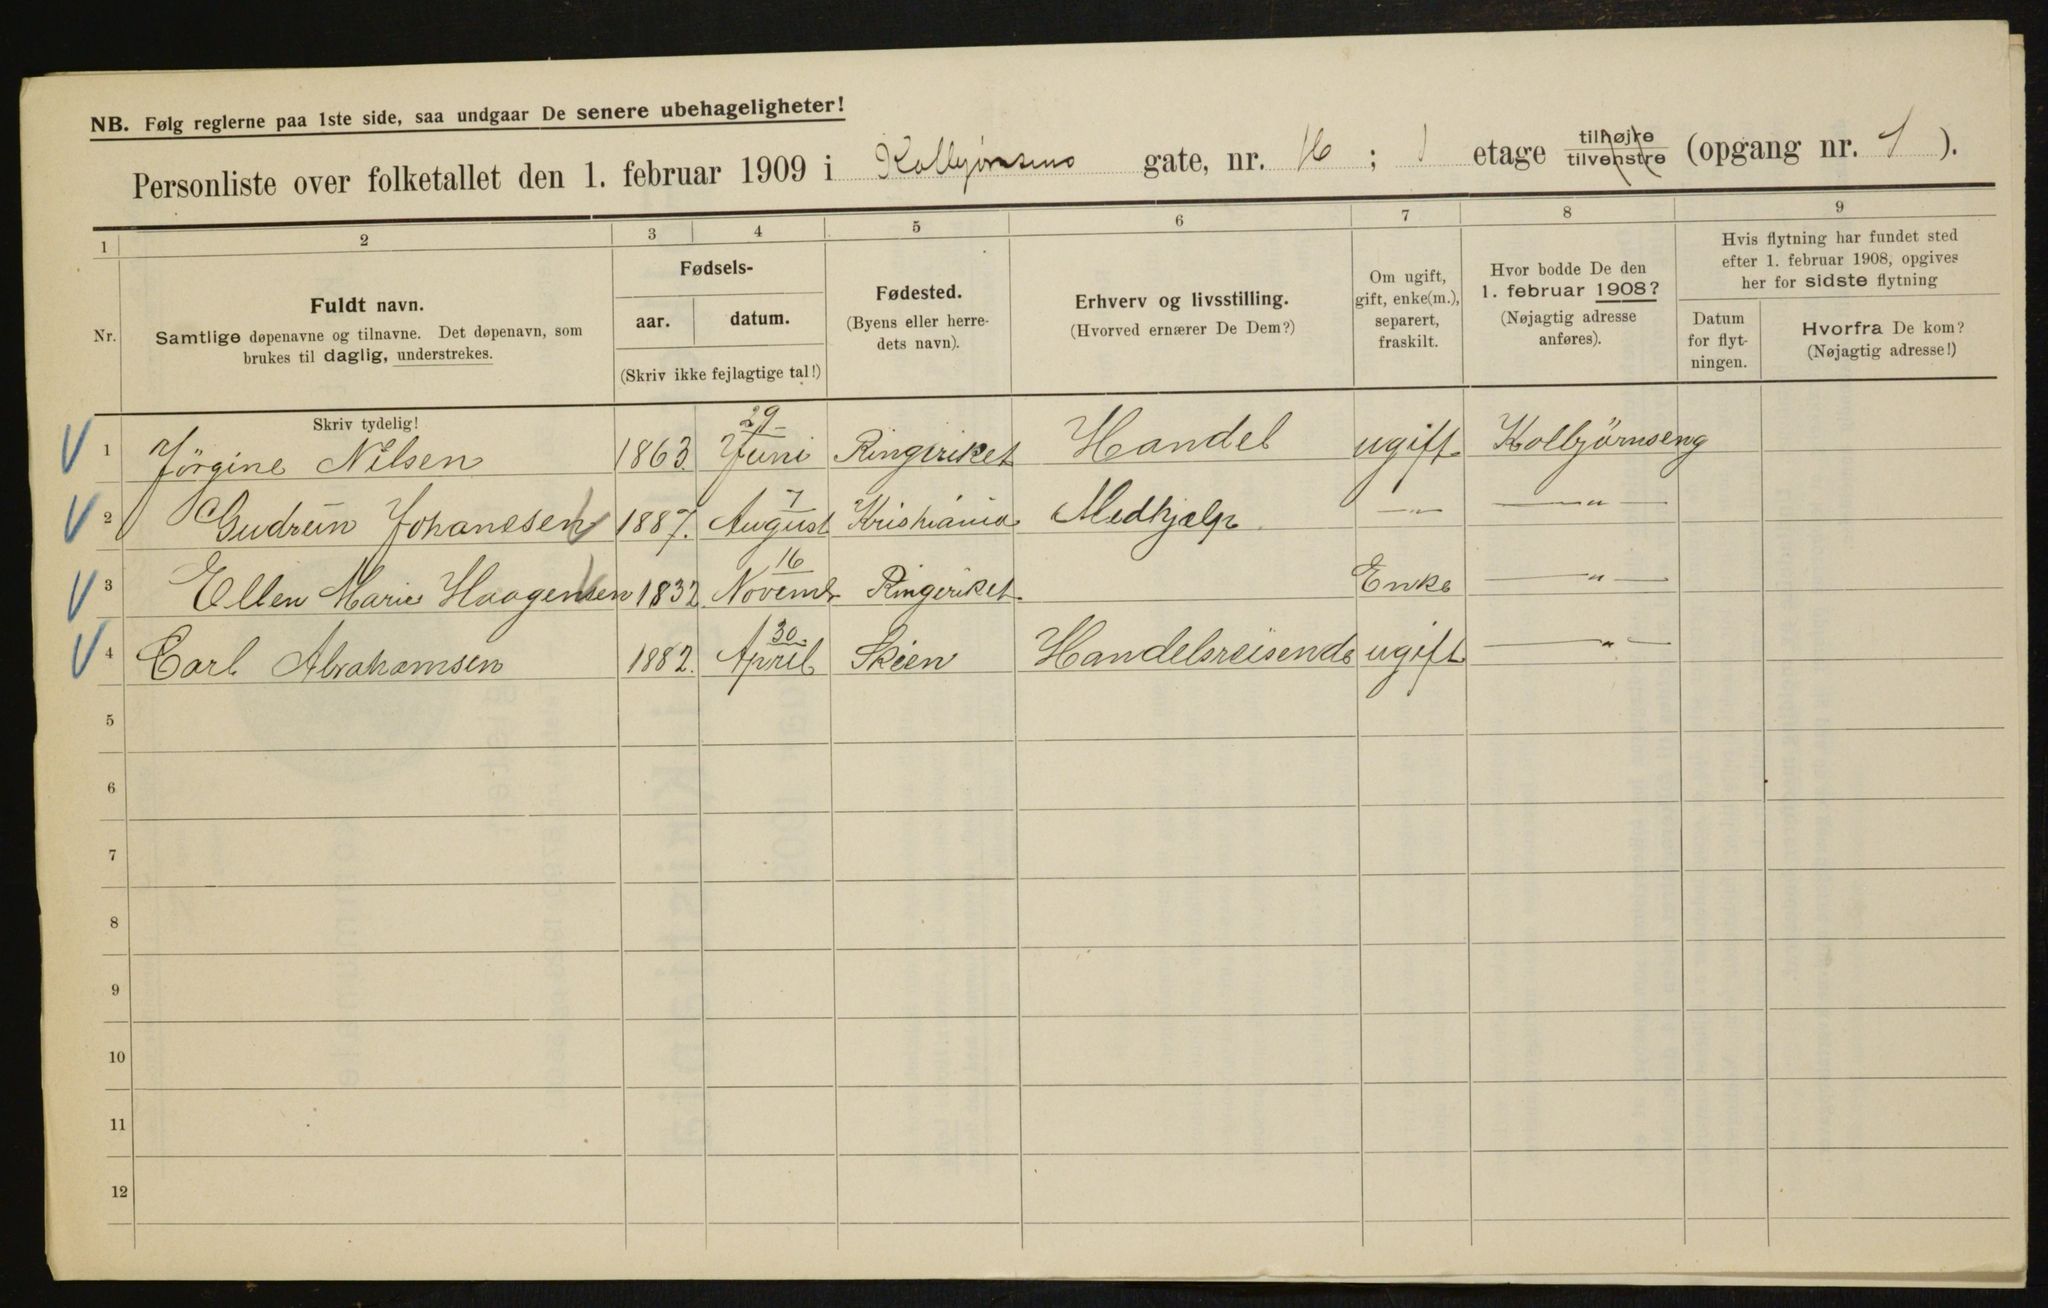 NB. Følg reglerne paa 1ste side, saa undgaar De senere ubehageligheter!
Personliste over folketallet den 1. februar 1909 i Kolbjørnsens gate, nr. 16 ; 1 etage tilhøjre tilvenstre (opgang nr. 1 ).
1 2 3 4 5 6 7 8 9
Nr.
Fuldt navn.
Samtlige døpenavne og tilnavne. Det døpenavn, som
brukes til daglig, understrekes.
Fødsels-
aar. datum.
(Skriv ikke fejlagtige tal!)
Fødested.
(Byens eller herre-
dets navn).
Erhverv og livsstilling.
(Hvorved ernærer De Dem?)
Om ugift,
gift, enke(m.),
separert,
fraskilt.
Hvor bodde De den
1. februar 1908?
(Nøjagtig adresse
anføres).
Hvis flytning har fundet sted
efter 1. februar 1908, opgives
her for sidste flytning
Datum
for flyt-
ningen.
Hvorfra De kom?
(Nøjagtig adresse!)
Skriv tydelig!
1 Jörgine Nilsen 1863 29 Juni Ringeriket Handel ugift Kolbjörnseng
2 Gudrun Johanesen 1887. 7 August Kristiania Medhjælp. —"— —"—
3 Ellen Marie Haagensen 1832 16 Novembr Ringeriket. Enke —"—
4 Carl Abrahamsen 1882. 30. April Skien Handelsreisende ugift —"—
5
6
7
8
9
10
11
12